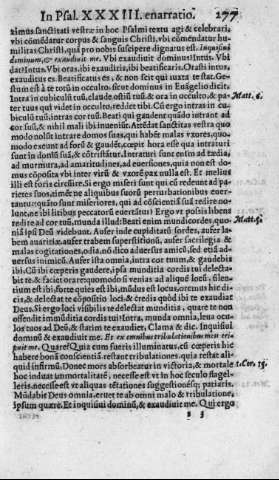 In Psal. XXXIII. enarratio. 277
ximus sanctitati vestræ: in hoc Psalmi textu agi & celebrari,
vbi cōmēdatur corpus & sanguis Christi, vbi cōmendatur hu-
militas Christi, quā pro nobis suscipere dignatus est. Inquisiui
dominum, & exaudiuit me. Vbi exaudiuit dominus? Intus. Vbi
dat? Intus. Vbi oras, ibi exaudiris, ibi beatificaris. Orasti intus,
exauditus es, Beatificatus es, & non scit qui iuxta te stat. Ge-
stum est à te totū in occulto, sicut dominus in Euāgelio dicit.
Intra in cubiculū tuū, claude ostiū tuū, & ora in occulto, & pa- Matt. 6.
ter tuus qui videt in occulto, reddet tibi. Cū ergo intras in cu-
biculū tuū, intras cor tuū. Beati qui gaudent quādo intrant ad
cor suū, & nihil mali ibi inueniūt. Attēdat sanctitas vestra quo
modo nolūt intrare domos suas, qui habēt malas vxores, quo-
modo exeunt ad forū & gaudēt, cœpit hora esse qua intraturi
sunt in domū suā, & cōtristātur. Intraturi sunt enim ad tædia,
ad murmura, ad amaritudines, ad euersiones, quia non est do-
mus cōposita vbi inter virū & vxorē pax nulla est. Et melius
illi est foris circuire. Si ergo miseri sunt qui cū redeunt ad pa-
rietes suos, timēt ne aliquibus suorū perturbationibus euer-
tantur: quāto sunt miseriores, qui ad cōsciētiā suā redire no-
lunt, ne ibi litibus peccatorū euertātur? Ergo vt possis libens
redire ad cor tuū, munda illud: Beati enim mundicordes, quo- Matt. 5.
niā ipsi Deū videbunt. Aufer inde cupiditatū sordes, aufer la-
bem auaritiæ, aufer trabem superstitionū, aufer sacrilegia &
malas cogitationes, odia, nō dico aduersus amicū, sed etiā ad-
uersus inimicū. Aufer ista omnia, intra cor tuum, & gaudebis
ibi. Cū ibi cœperis gaudere, ipsa munditia cordis tui delecta-
bit te & faciet orare: quomodo si venias ad aliquē locū, silen-
tium est ibi, forte quies est ibi, mūdus est locus, oremus hic di-
cis, & delectat te cōpositio loci & credis quòd ibi te exaudiat
Deus. Si ergo loci visibilis te delectat munditia, quare te non
offendit immūditia cordis tui? Intra, munda omnia, leua ocu-
los tuos ad Deū, & statim te exaudiet. Clama & dic. Inquisiui
dominū & exaudiuit me. Et ex omnibus tribulationibus meis eri-
puit me. Quare? Quia cum fueris illuminatus, cū cœperis hic
habere bonā conscientiā, restant tribulationes, quia restat ali-
quid infirmū, Donec mors absorbeatur in victoria, & mortale 1. Cor. 15.
hoc induat immortalitatē, necesse est vt in hoc seculo flagel-
leris, necesse est vt aliquas tētationes suggestionesq; patiaris.
Mūdabit Deus omnia, eruet te ab omni malo & tribulatione,
ipsum quære. Et inquisiui dominū, & exaudiuit me. Qui ergo